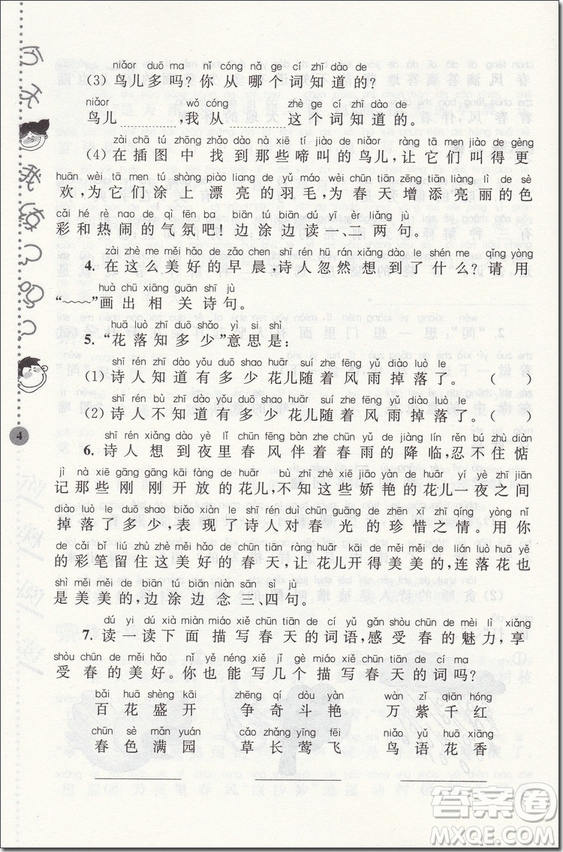 niǎor duō ma nǐ cóng nǎ ge cí zhī dào de
(3) 鸟儿多吗?你从哪个词知道的?
niǎor wǒ cóng zhè ge cí zhī dào de
鸟儿 ,我从 这个词知道的。
zài chā tú zhōng zhǎo dào nà xiē tí jiào de niǎor ràng tā men jiào de gèng
(4) 在插图中找到那些啼叫的鸟儿,让它们叫得更
huān wèi tā men tú shàng piào liang de yǔ máo wèi chūn tiān zēng tiān liàng lì de sè
欢,为它们涂上漂亮的羽毛,为春天增添亮丽的色
cǎi hé rè nao de qì fēn ba biān tú biān dú yī èr liǎng jù
彩和热闹的气氛吧!边涂边读一、二两句。
zài zhè me měi hǎo de zǎo chen shī rén xiǎng dào le shén me qǐng yòng
4. 在这么美好的早晨,诗人想到了什么?请用
huà chū xiāng guān shī jù
“﹏﹏”画出相关诗句。
huā luò zhī duō shǎo yì si shì
5. “花落知多少”意思是:
shī rén zhī dào yǒu duō shao huār suí zhe fēng yǔ diào luò le
(1) 诗人知道有多少花儿随着风雨掉落了。 ( )
shī rén bù zhī dào yǒu duō shao huār suí zhe fēng yǔ diào luò le
(2) 诗人不知道有多少花儿随着风雨掉落了。 ( )
4
shī rén xiǎng dào yè lǐ chūn fēng bàn zhe chūn yǔ de jiàng lín rěn bú zhù diàn
6. 诗人想到夜里春风伴着春雨的降临,忍不住惦
jì nà xiē gāng gāng kāi fàng de huār bù zhī zhè xiē jiāo yàn de huār yí yè zhī jiān
记那些刚刚开放的花儿,不知这些娇艳的花儿一夜之间
diào luò le duō shǎo biǎo xiàn le shī rén duì chūn guāng de zhēn xī zhī qíng yòng nǐ
掉落了多少,表现了诗人对春光的珍惜之情。用你
de cǎi bǐ liú zhù zhè měi hǎo de chūn tiān ràng huār kāi de měi měi de lián luò huā yě
的彩笔留住这美好的春天,让花儿开得美美的,连落花也
shì měi měi de biān tú biān niàn sān sì jù
是美美的,边涂边念三、四句。
dú yi dú xià miàn miáo xiě chūn tiān de cí yǔ gǎn shòu chūn de mèi lì xiǎng
7. 读一读下面描写春天的词语,感受春的魅力,享
shòu chūn de měi hǎo nǐ néng xiě jǐ gè miáo xiě chūn tiān de cí ma
受春的美好。你能写几个描写春天的词吗?
bǎi huā shèng kāi zhēng qí dòu yàn wàn zǐ qiān hóng
百花盛开 争奇斗艳 万紫千红
chūn sè mǎn yuán cǎo zhǎng yīng fēi niǎo yǔ huā xiāng
春色满园 草长莺飞 鸟语花香
答案圈
MXQE.COM